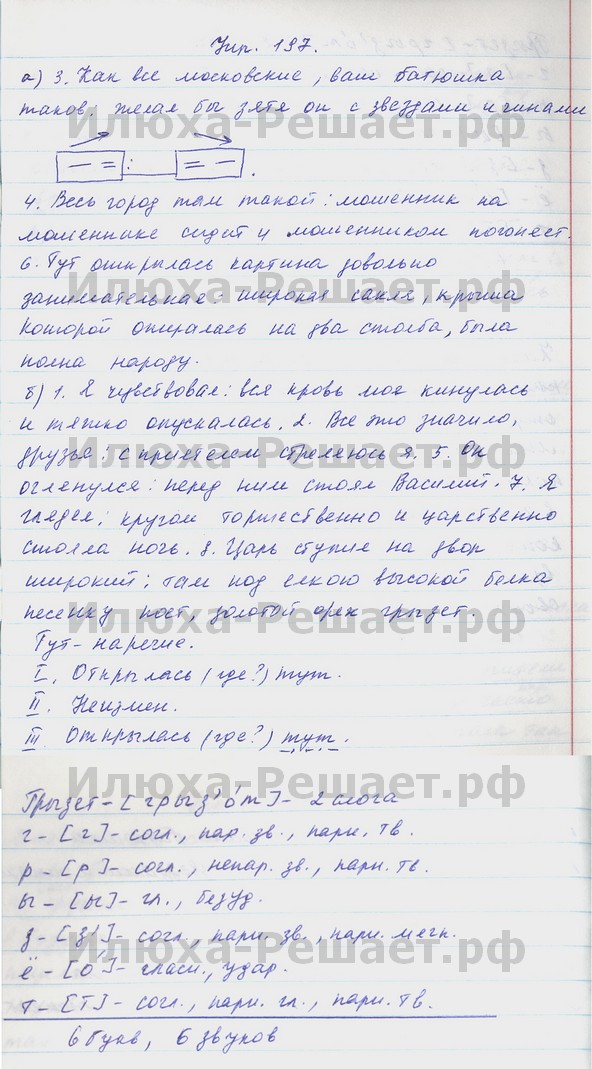 Упр. 197.
а) 3. Как все московские, ваш батюшка
таков: желал бы зятя он с звездами и чинами
Илюха-Решает.рф
4. Весь город там такой: мошенник на
мошеннике сидит и мошенником погоняет.
6. Тут открылась картина довольно
занимательная: широкая сакля, крыша
Илюха-Решает.рф
которой опиралась на два столба, была
полна народу.
б) 1. Я чувствовал: вся кровь моя кинулась
и тяжко опускалась. 2. Все это значило,
друзья: с приятелем стреляюсь я. 5. Он
Илюха-Решает.рф
оглянулся: перед ним стоял Василий. 7. Я
глядел: кругом торжественно и царственно
стояла ночь. 8. Царь ступил на двор
широкий: там под елкою высокой белка
песенку поет, золотой орех грызет.
Илюха-Решает.рф
Тут - наречие.
I. Открылась (где?) тут.
II. Неизмен.
III. Открылась (где?) тут.
Илюха-Решает.рф
Грызёт - [грыз'о́т] - 2 слога
г - [г] - согл., пар. зв., парн. тв.
р - [р] - согл., непар. зв., парн. тв.
ы - [ы] - гл., безуд.
з - [з'] - согл., парн. зв., парн. мягк.
Илюха-Решает.рф
ё - [о́] - гласн., удар.
т - [т] - согл., парн. гл., парн. тв.
6 букв, 6 звуков